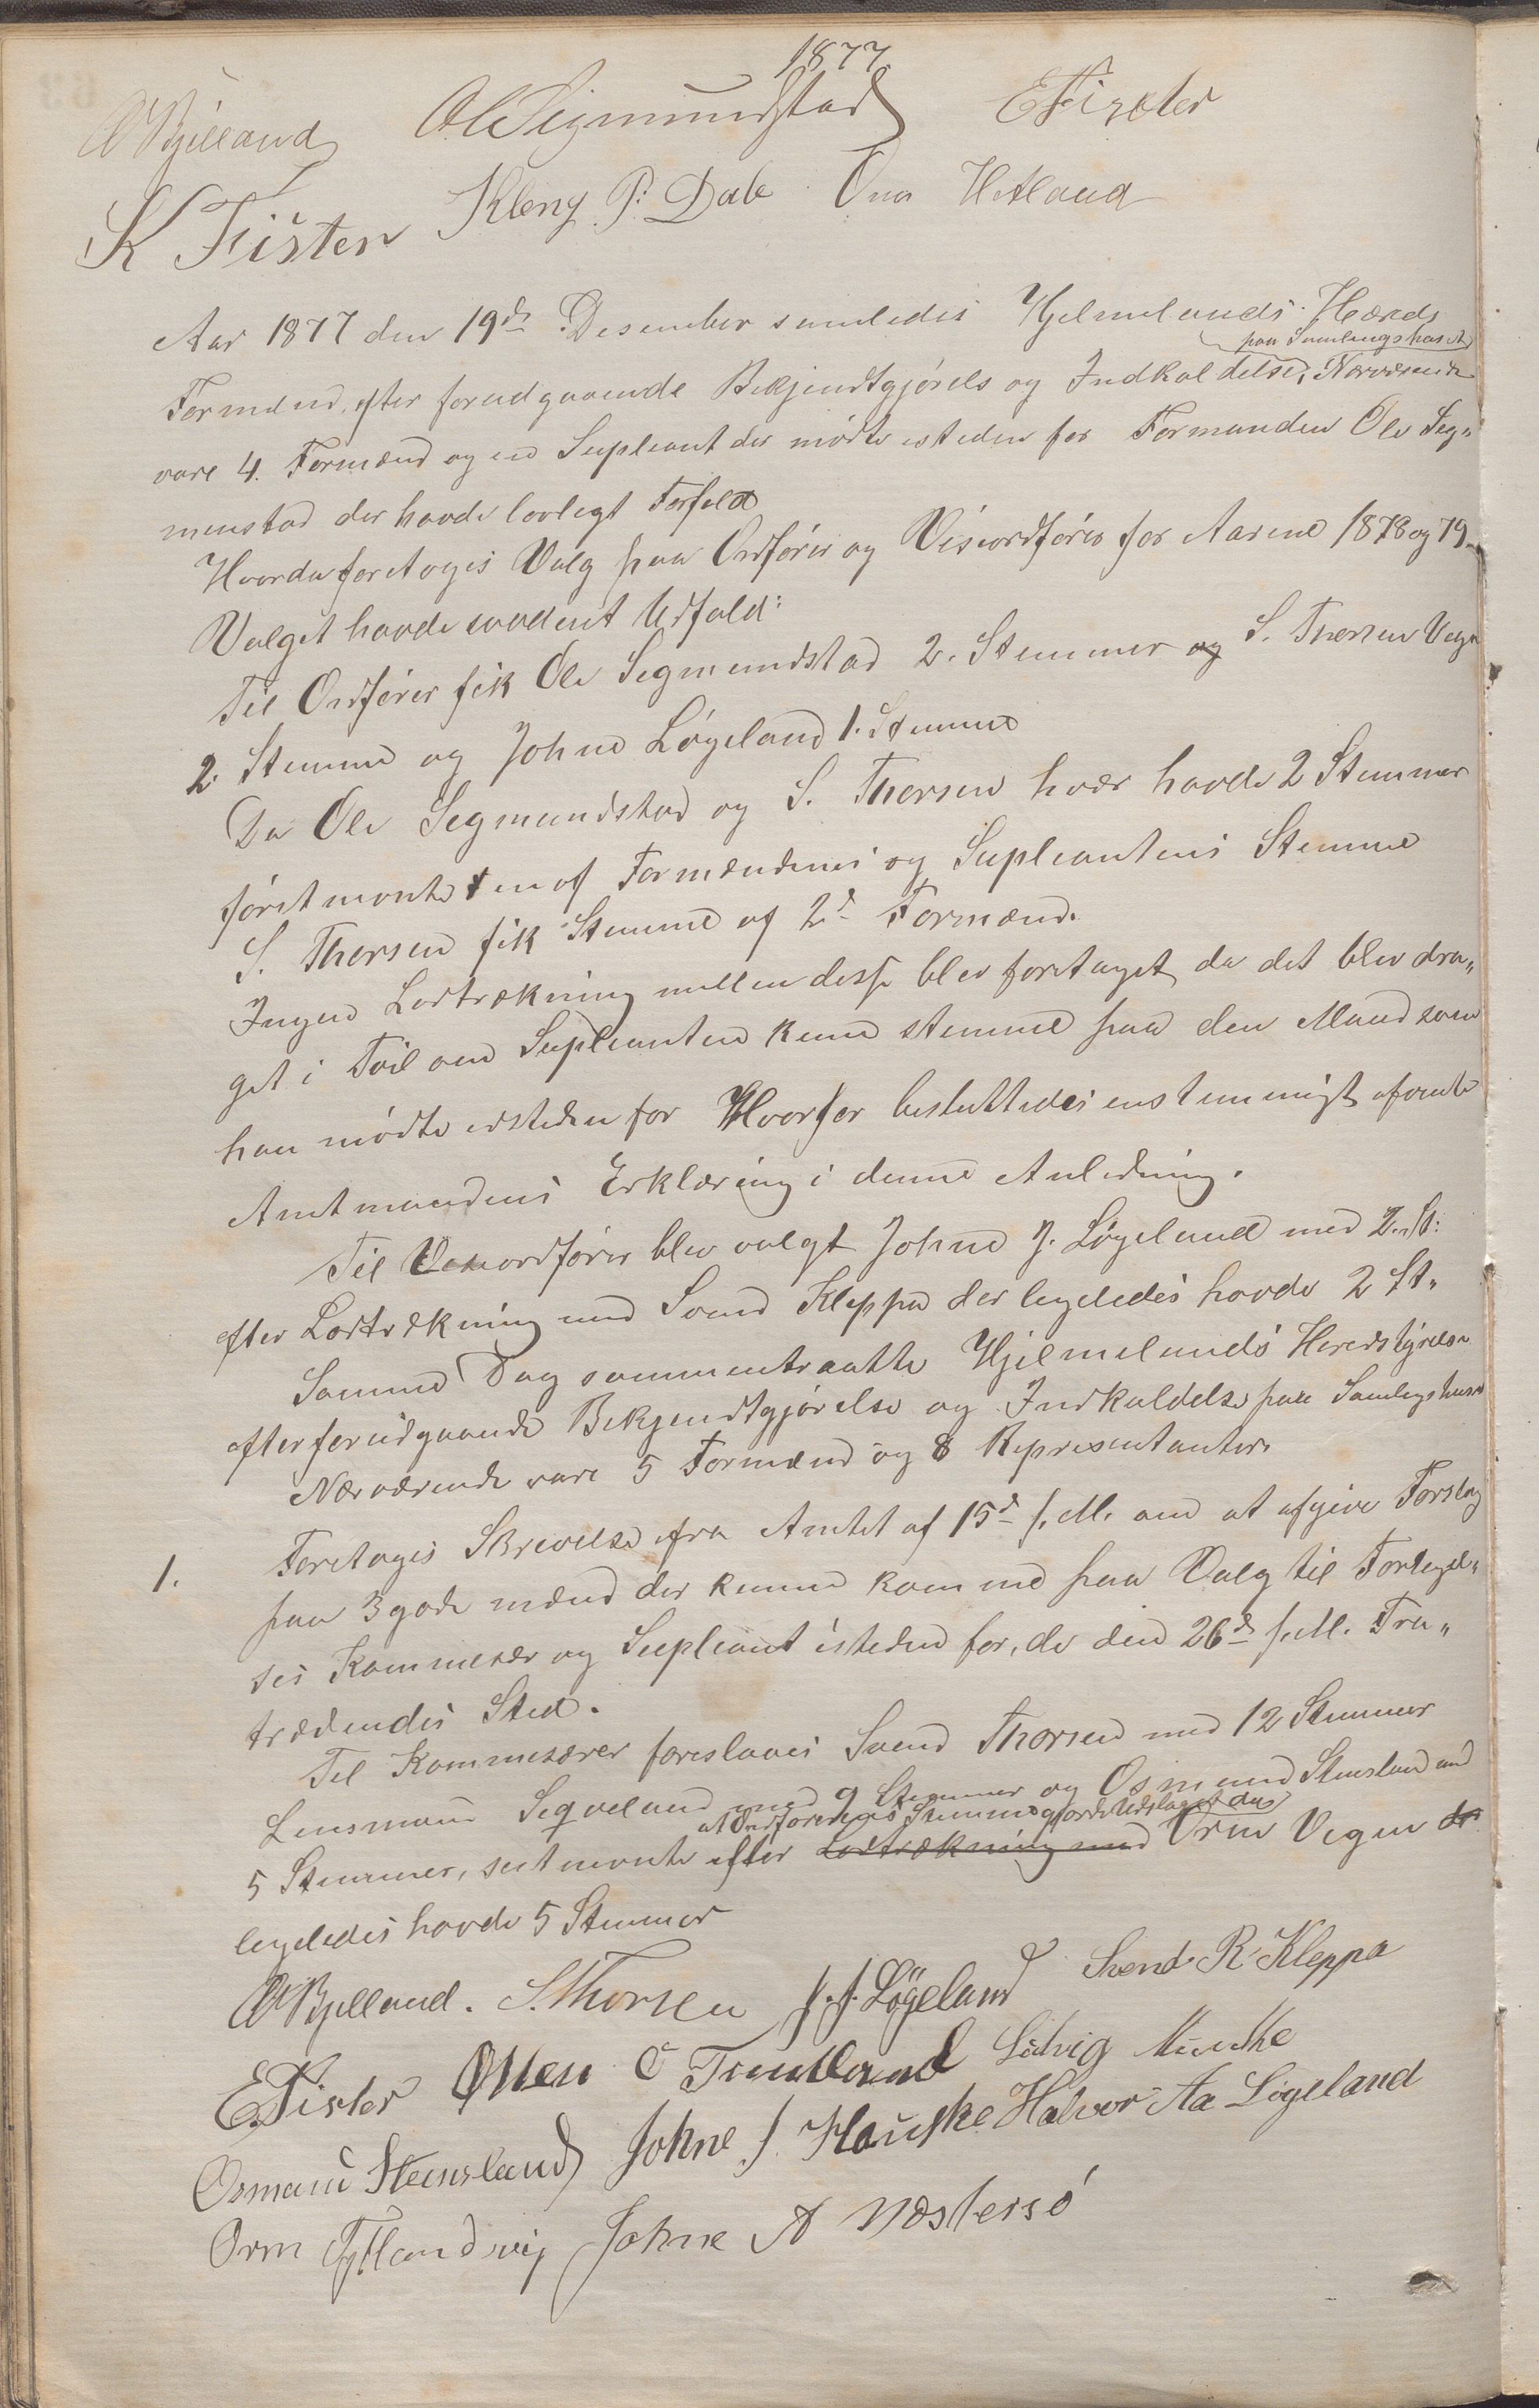 1877
O Bjelland OLSigmundstad E Fister
K Fister Kleng P: Dale Ona Hetland
Aar 1877 den 19de Desember samledes Hjelmelands Hereds
paa Samlingshuset
Formænd, efter forudgaaende Bekjendtgjørels og Indkaldelse, Nærværende
vare 4. Formænd og en Supleant der mødte isteden for Formanden Ole Seg„
menstad der havde lovlegt Forfald
Hvorda foretoges Valg paa Ordfører og Viseordfører for Aarene 1878 og 79
Valget havde saadent Udfald:
Til Ordfører fik Ole Segmundstad 2. Stemmer og S. Thorsen Vega
2. Stemme og Johne Løgeland 1. Stemme
Da Ole Segmundstad og S. Thorsen hver havde 2 Stemmer
førstnevnte en af Formændenes og Supleantens Stemme
S. Thorsen fik Stemme af 2de Formænd.
Ingen Lodtrækning mellem desse blev foretaget, da det blev dra„
get i Tvil om Supleanten kune stemme paa den Mand som
han mødte istedenfor Hvorfor besluttedes enstemmigt afvente
Amtmandens Erklæring i denne Anledning.
Til Veseordfører blev valgt Johne J. Løgeland med 2. St:
efter Lodtrækning med Svend Kleppa der legeledes havde 2 St„
Samme Dag sammentraatte Hjelmelands Heredstyrelse
efter forudgaaende Bekjendtgjørelse og Indkaldelse paa Samlingshuset
Nærværende vare 5 Formænd og 8 Representanter
1. Foretoges Skrivelse fra Amtet af 15de f. M. om at afgive Forslag
paa 3 gode mænd der kunne komme paa Valg til Forlegel„
ses Kommesær og Supleant isteden for, de den 26de f. M. Fra„
trædendes Sted.
Til Kommesærer foreslaaes Svend Thorsen med 12 Stemmer
Lensmann Seqveland med 9 Stemmer og Osmund Stensland med
at Ordførerens Stemme gjorde Udslaget da
5 Stemmer, sistnevnte efter Lodtrækning med Orm Vegen der
legeledes havde 5 Stemmer
O Bjelland. S. Thorsen J. J. Løgeland Svend R Kleppa
E Fister Osten O Trondland Ludvig Munthe
Osmund Steensland Johne J. Hauske Halvor Aa Løgeland
Orm Fyllandsvig Johne A Vestersø